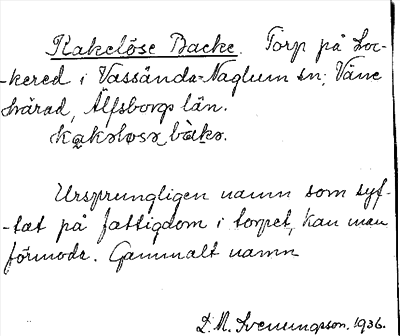 Kakelöse Backe. Torp på Loc-
-kered i Vassända-Naglum sn; Väne
härad, Älfsborgs län.
kakələsə bàkə.
Ursprungligen namn som syf-
-tat på fattigdom i torpet, kan man
förmoda. Gammalt namn
D. M. Svenningson. 1936.